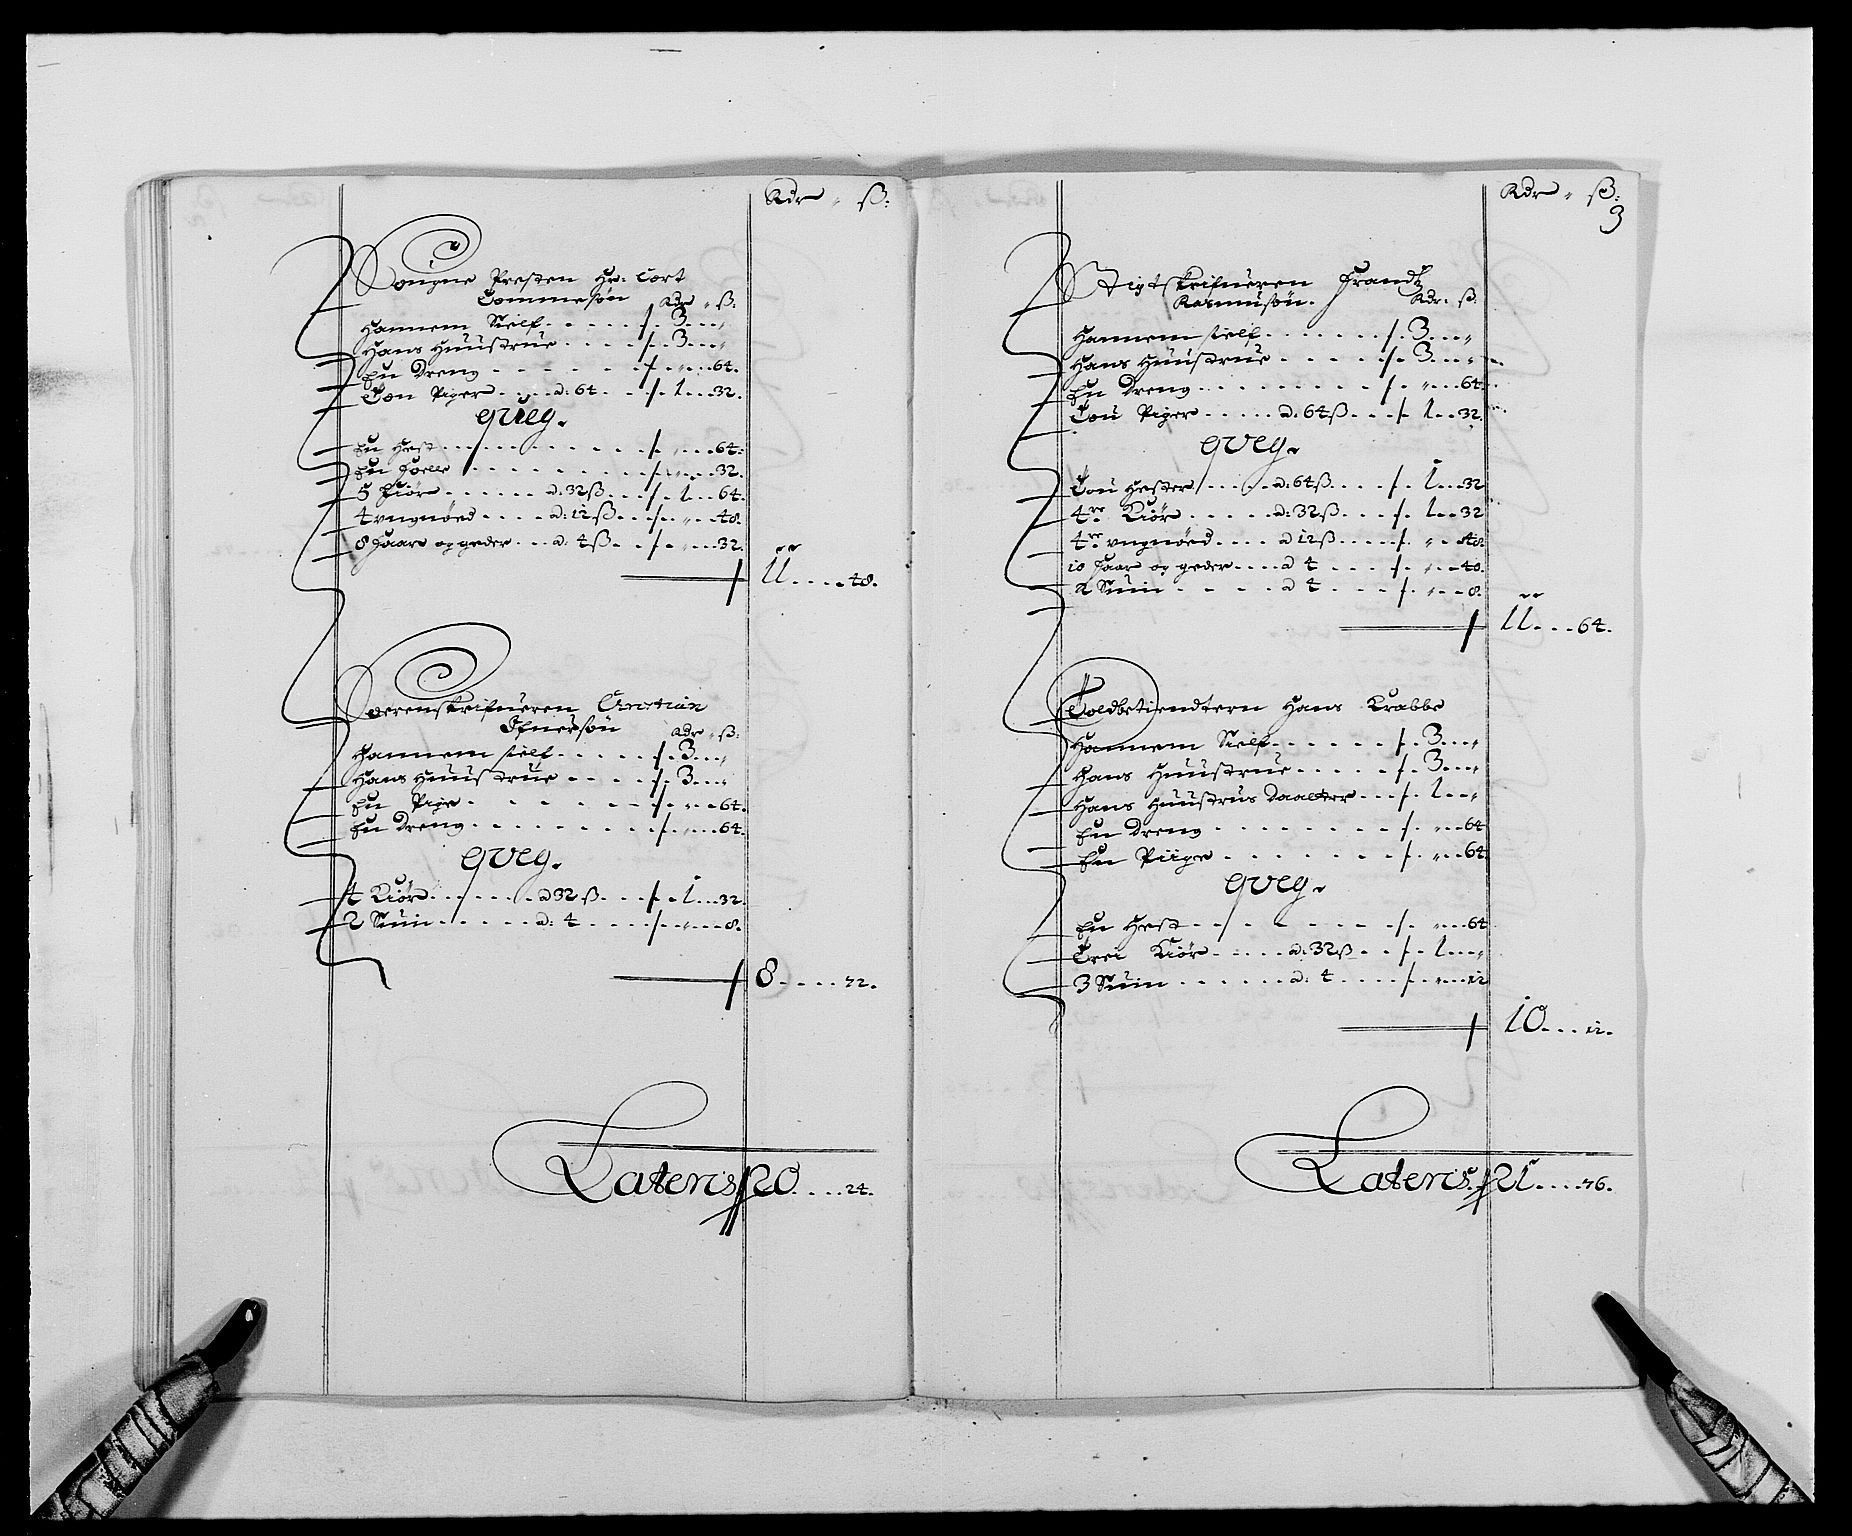 Rdr " ß:
Sougne Presten Hr: Cort
Tommesøn Rdr " ß:
Hannem Sielf - - - - - /. 3 - - "
Hans Huustrue - - - - /. 3 - - "
En Dreng - - - - - - /. " - - 64.
Tou Piger - - - a: 64 - - /. 1 - - 32.
queg.
En Hest - - - - - - - - /. " - - 64:
En Foelle - - - - - - - /. " - - 32.
5 Kiør - - - - - a: 32 ß - - /. 1 - - 64.
4 ungnøed - - - - a: 12 ß - - /. " - - 48.
8 Faare og geder - - a: 4 ß - - /. " - - 32.
/ 11 - - - 48.
Soerenskrifueren Christian
Ifuersøn Rdr " ß:
Hannem sielf - - - - - /. 3 - - "
Hans Huustrue - - - - /. 3 - - "
En Pige - - - - - - /. " - - 64.
En Dreng - - - - - - - /. " - - 64.
qveg.
4 Kiør - - - - - a 32 ß - - /. 1 - - 32.
2 Suin - - - - - a: 4 - - - /. " - - 8.
/ 8 - - - - 72.
Lateris // 20 - - - 24.
Rdr " ß:
3
Stigtskrifueren Frandtz
Rasmusøn. Rdr: ß:
Hannem sielf - - - - - - /. 3 - - "
Hans Huustrue - - - - - /. 3 - - "
En Dreng - - - - - - - - /. " - - 64
Tou Piger - - - - a: 64 ß - - /. 1 - - 32.
qveg.
Tou Hester - - - a: 64 ß - - - /. 1 - - 32
4re Kiør - - - - a: 32 ß - - - /. 1 - - 32
4re ungnøed - - - - a 12 ß - - - /. " - - 48.
10 Faar og geder - - - a 4 - - - /. " - - 40.
2 Suin - - - - a 4 - - - /. " - - 8.
/ 11 - - - 64.
Toldbetiendtern Hans Krabbe
Hannem Sielf - - - - - /. 3 - - "
Hans Huustrue - - - - - /. 3 - - "
Hans Huustrus Daatter - - - /. 1 - - "
En Dreng - - - - - - - - /. " - - 64
En Piige - - - - - - - /. " - - 64.
qveg.
En Hest - - - - - - - - /. " - - 64
Trei Kiør - - - - a: 32 ß - - /. 1 - - "
3 Suin - - - - - - a: 4 - - - /. " - - 12
/ 10 - - - 12.
Lateris // 21 - - - 76.